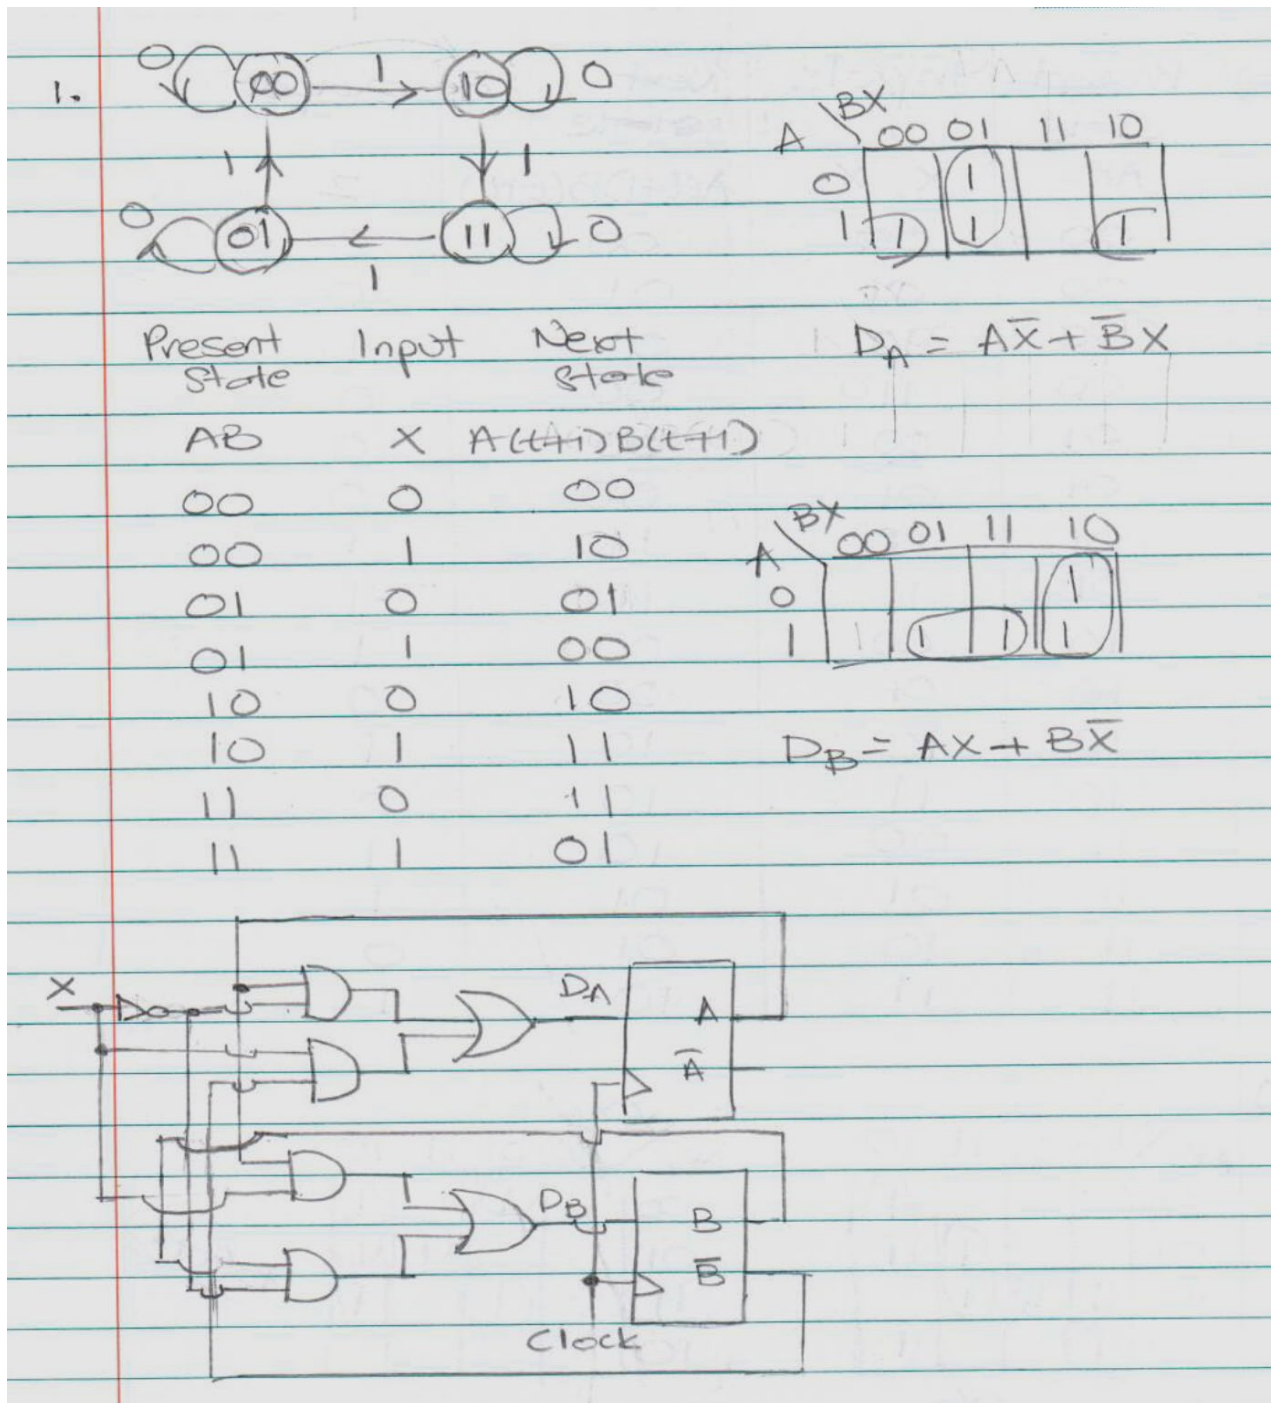 1.
0 00 1 10 0
1 1
0 01 1 11 0
A BX 00 01 11 10
0 1
1 1 1 1
D_A = AX̅ + B̅X
Present State Input Next State
AB X A(t+1)B(t+1)
00 0 00
00 1 10
01 0 01
01 1 00
10 0 10
10 1 11
11 0 11
11 1 01
A BX 00 01 11 10
0 1
1 1 1 1
D_B = AX + BX̅
X
D_A A
A̅
D_B B
B̅
Clock